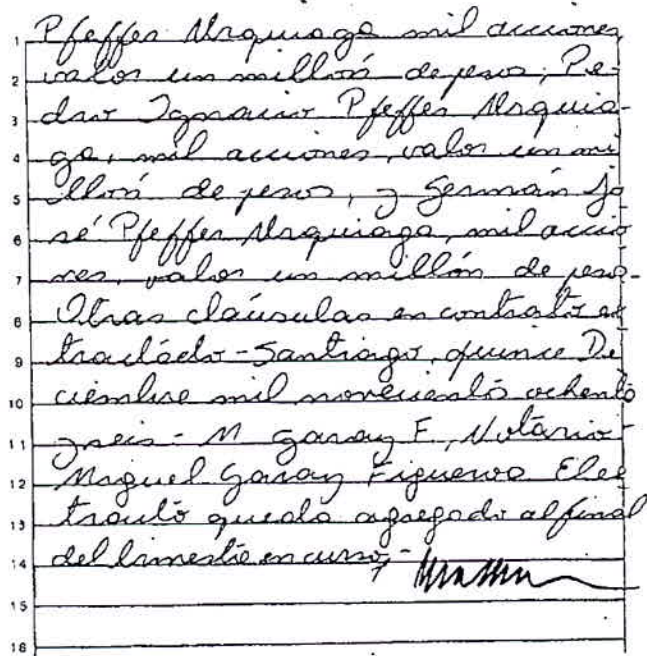 1 Pfeffer Urquiaga mil acciones,
2 valor un millón de pesos; Pe-
3 dro Ignacio Pfeffer Urquia-
4 ga, mil acciones, valor un mi
5 llón de pesos, y Germán Jo
6 sé Pfeffer Urquiaga, mil accio
7 nes, valor un millón de peso-
8 Otras claúsulas en contrato ex
9 tractado - Santiago, quince De
10 ciembre mil novecientos ochenta
11 y seis - M Garay F, Notario -
12 Miguel Garay Figueroa El ex
13 tracto queda agregado al final
14 del bimestre en curso, -
15
16